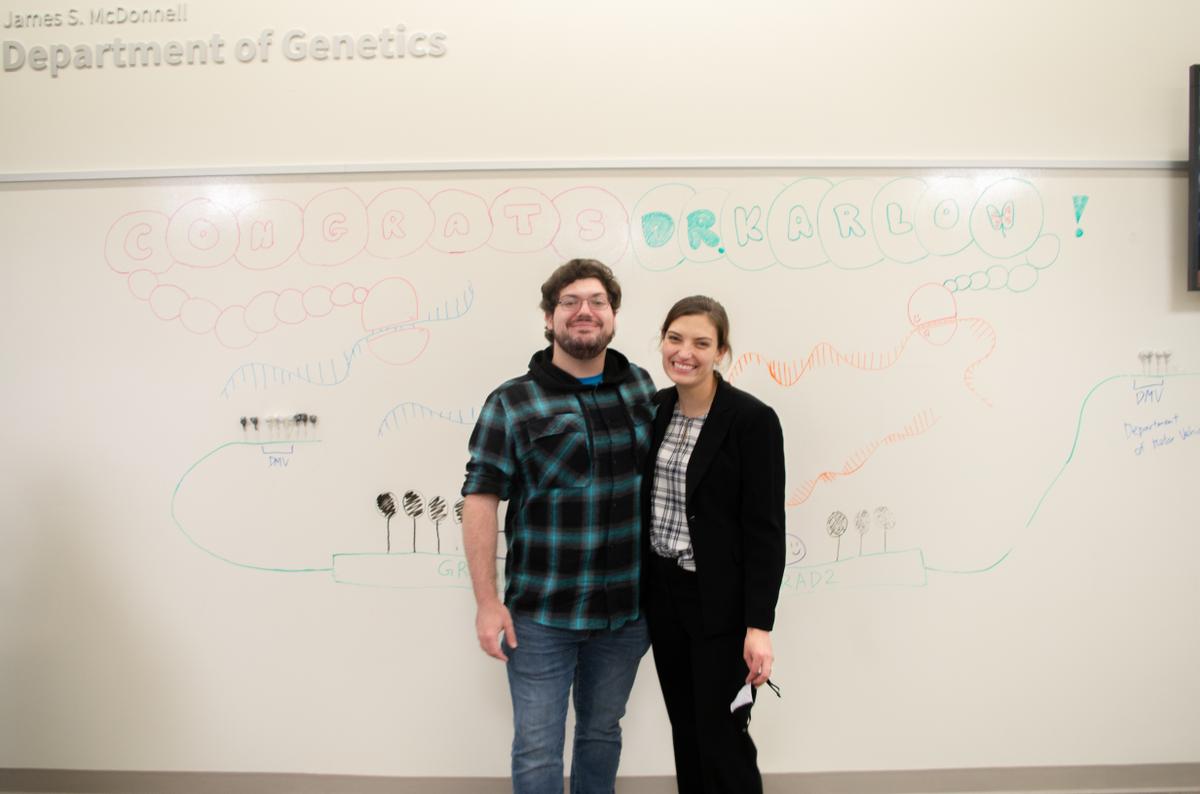 James S. McDonnell
Department of Genetics
CONGRATS DR. KARLOW!
DMV
DMV
Department
of Motor
GR
RAD2